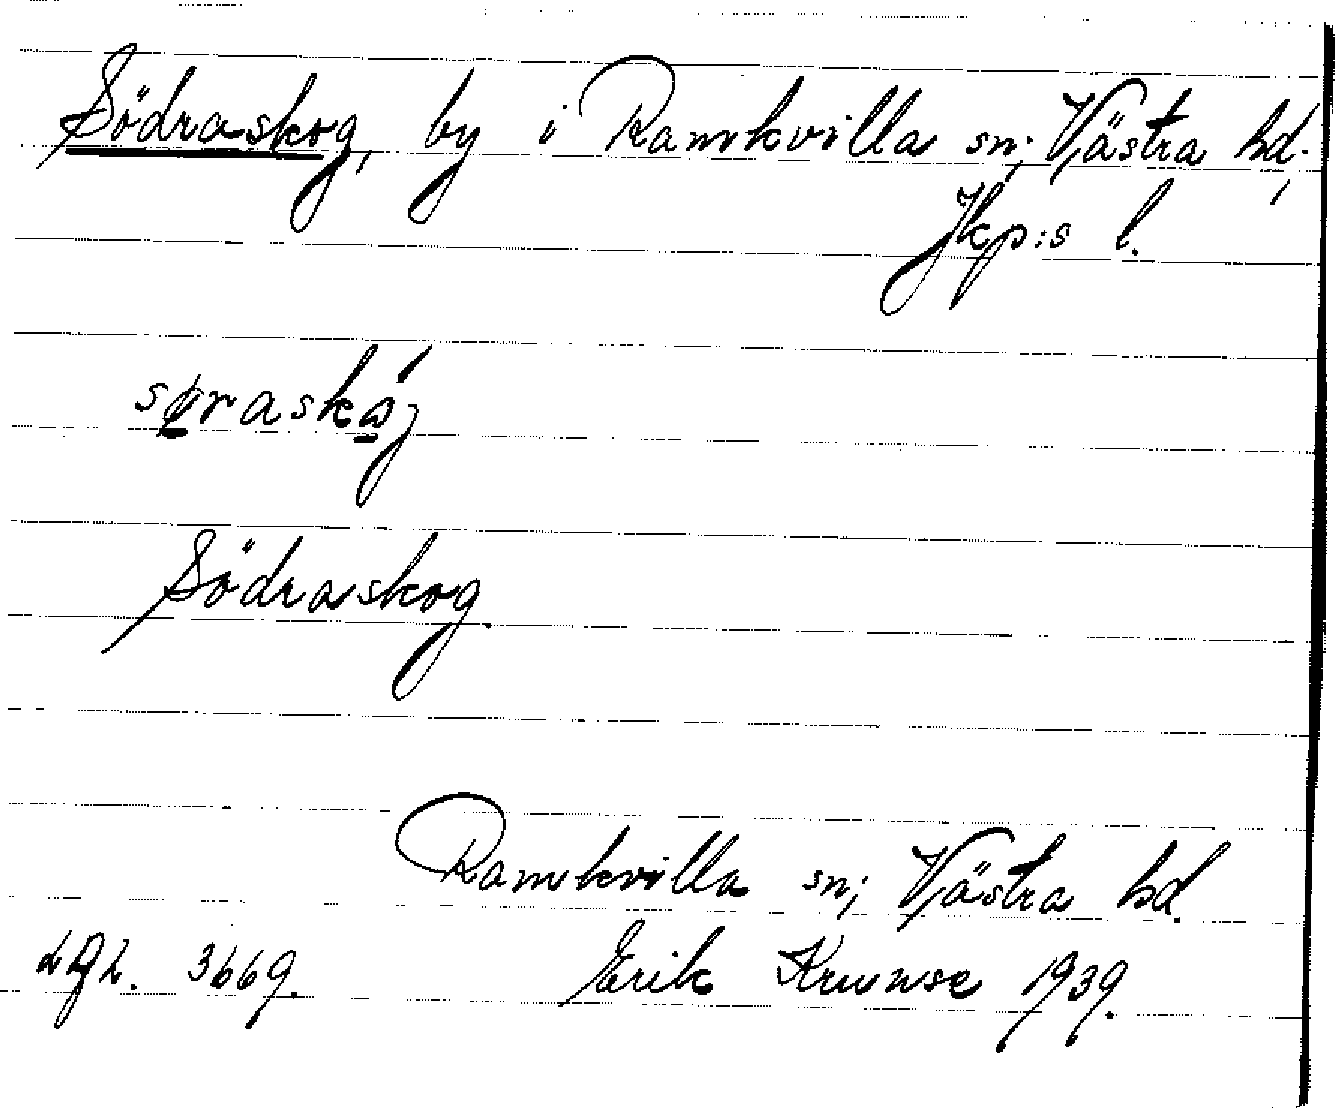 Södraskog, by i Ramkvilla sn; Västra hd.,
Jkp:s l.
Södraskog.
Ramkvilla sn; Västra hd.
3669. Erik 1939.